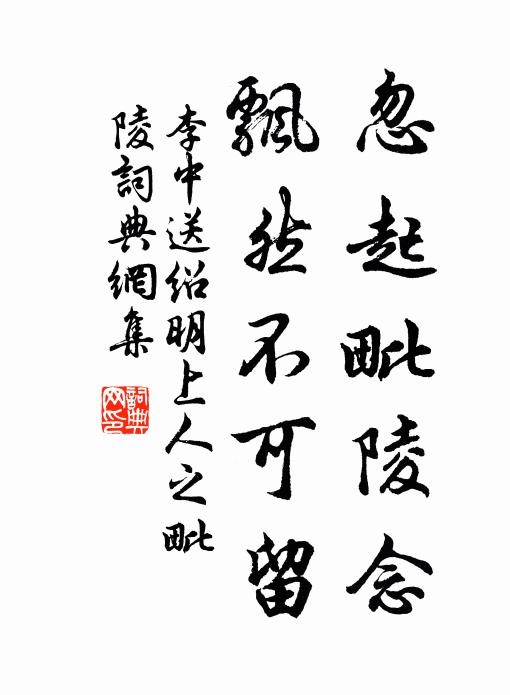 忽起毗陵念
飄然不可留
李中送紹明上人之毗
陵詞典網集
詞典
网印